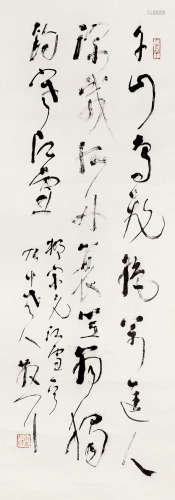 千山鳥飛絕萬逕人
蹤滅孤舟蓑笠翁獨
釣寒江雪
柳宗元江雪
老人散耳